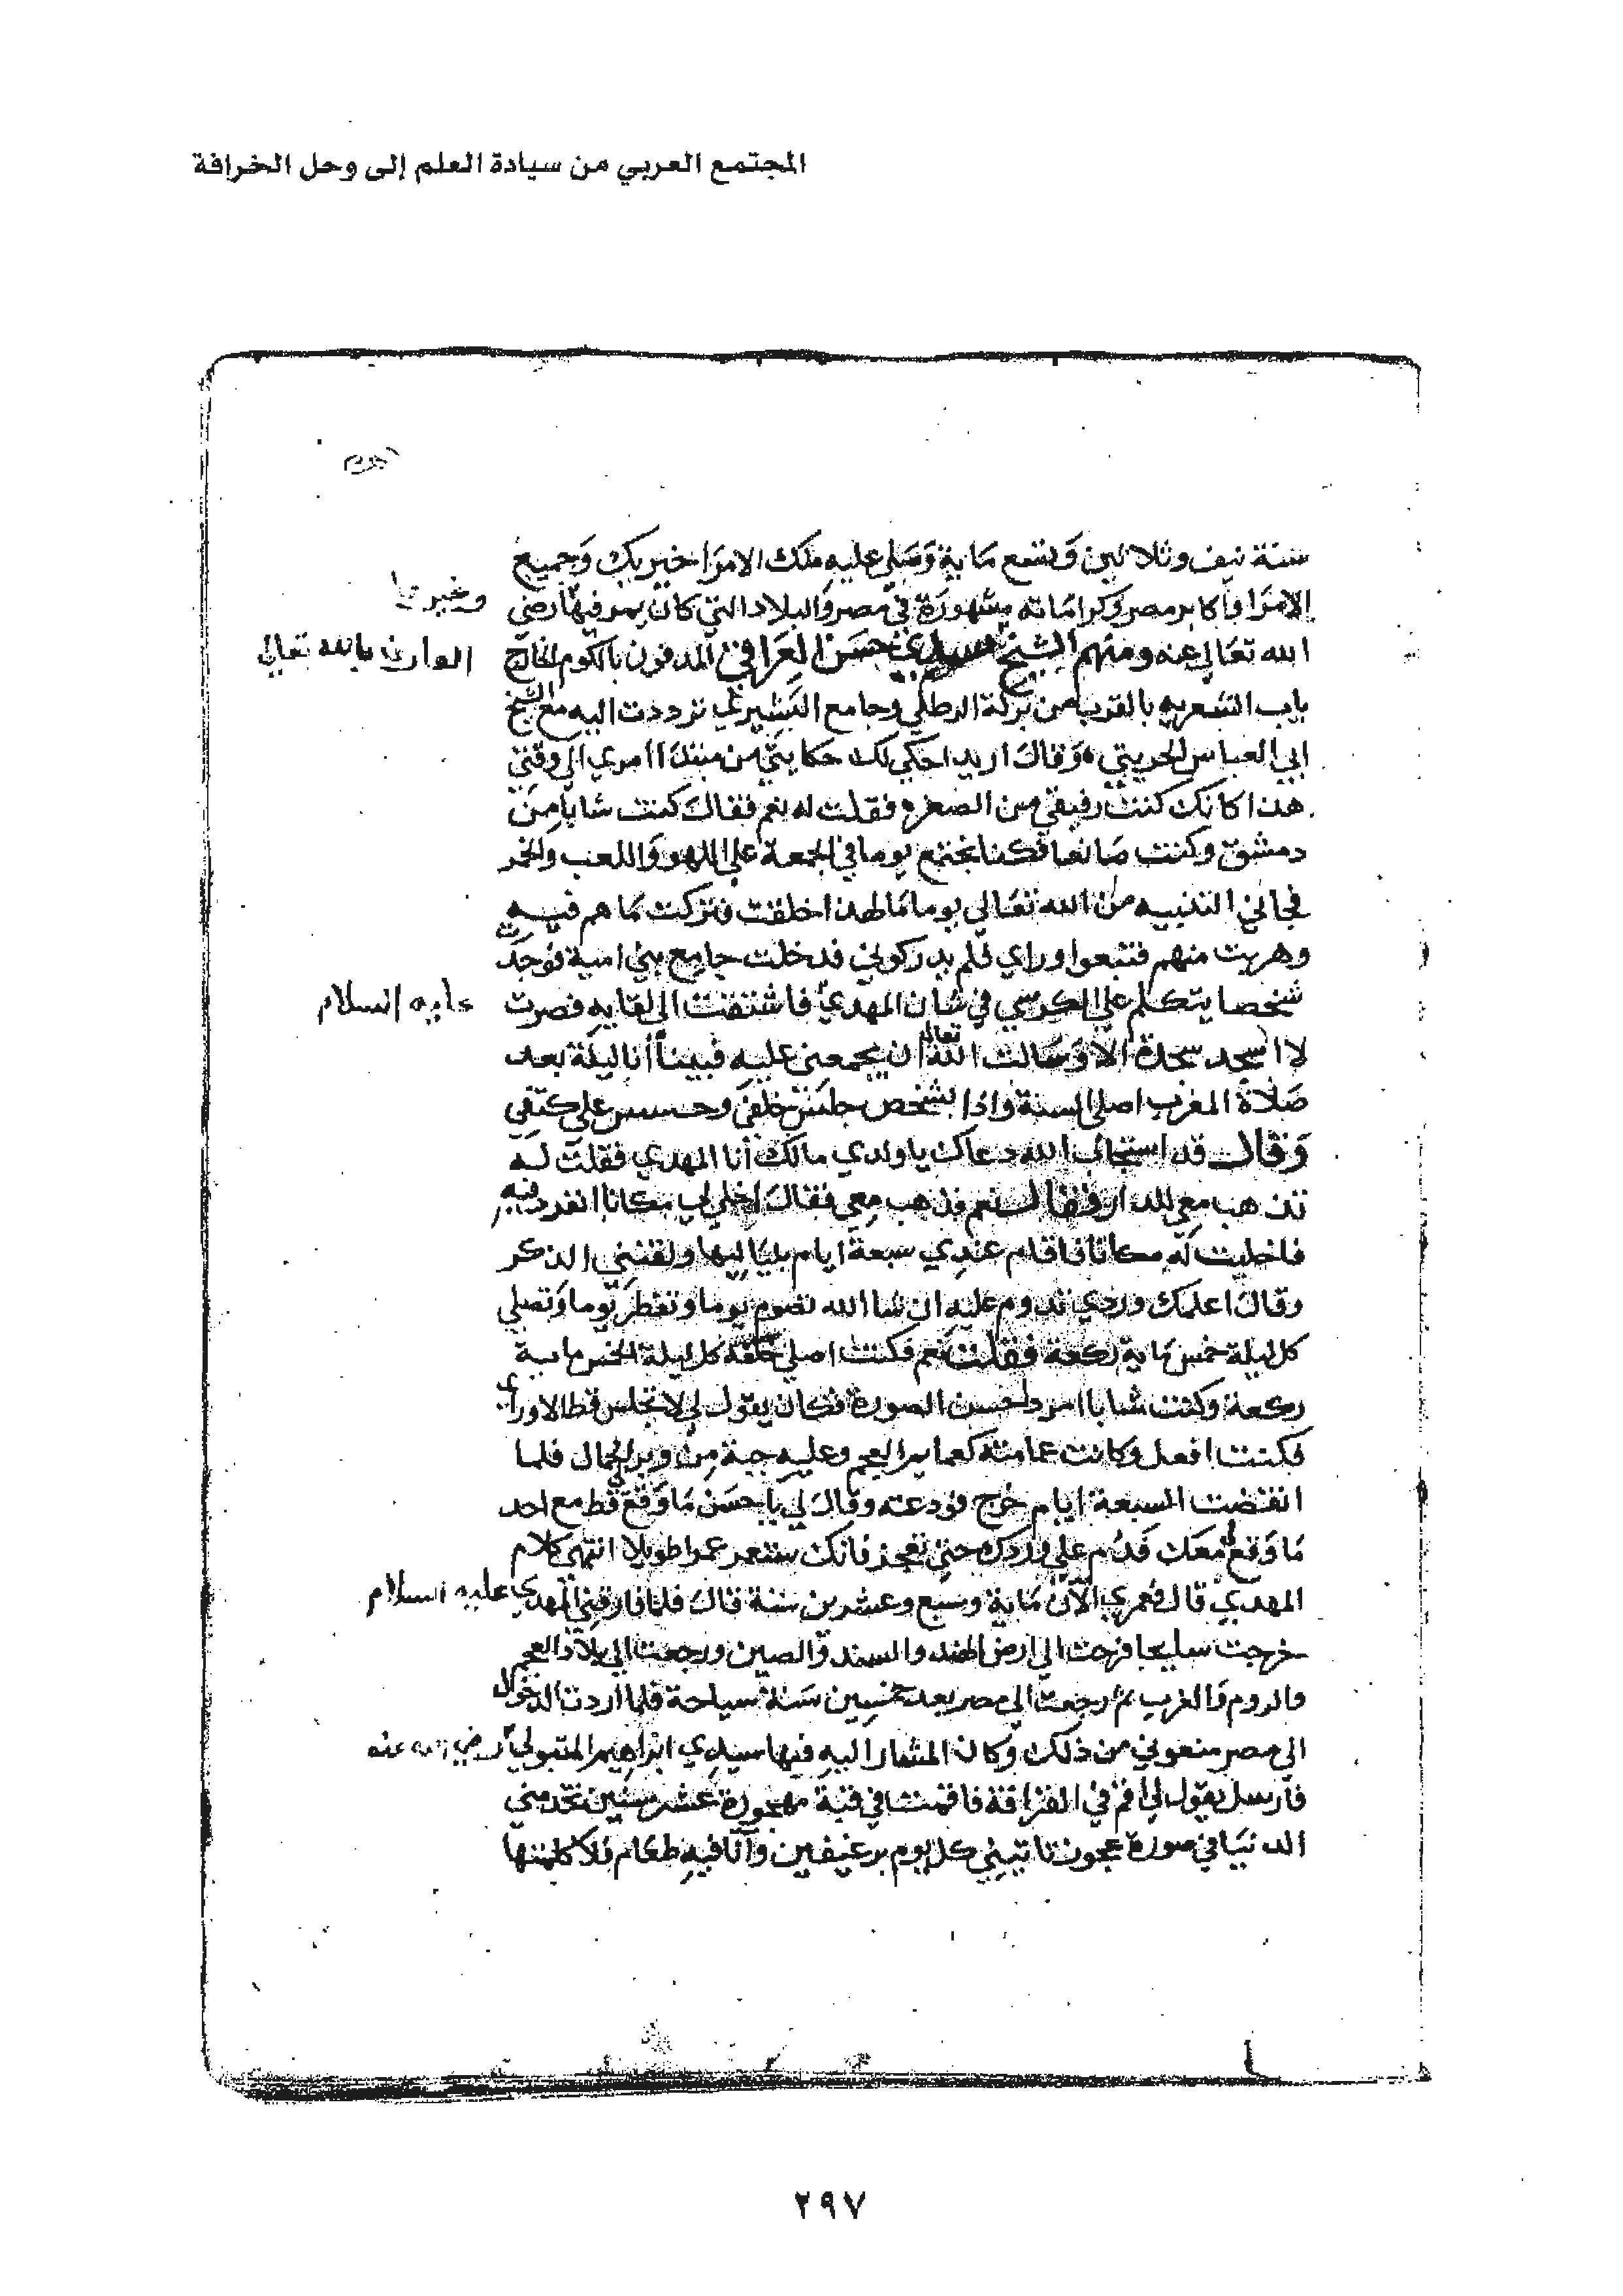 المجتمع العربي من سيادة العلم إلى وحل الخرافة
سنة نيف وثلاثين وتسع ماية وصلى عليه ملك الامرا خيربك وجميع
الامرا واكابر مصر وكراماته مشهورة في مصر والبلاد التي كان يمر فيها رضي
وغيرها
الله تعالى عنه ومنهم الشيخ سيدي حسن العراقي المدفون بالكوم الخارج
العارف بالله تعالى
باب الشعريه بالقرب من بركة الرطلي وجامع البشيري ترددت اليه مع الشيخ
ابي العباس الحريثي وقال اريد احكي لك حكايتي من مبتدا امري الى وقتي
هذا كانك كنت رفيقي من الصغر فقلت له نعم فقال كنت شابا من
دمشق وكنت صانعا فكنا نجتمع يوما في الجمعة على اللهو واللعب والخمر
فجاني التنبيه من الله تعالى يوما ما لهذا خلقت فتركت ما هم فيه
وهربت منهم فتبعوا وراي فلم يدركوني فدخلت جامع بني امية فوجدت
شخصا يتكلم على الكرسي في شان المهدي فاشتقت الى لقايه فصرت
عليه السلام
لا اسجد سجدة الا وسالت الله تعالى ان يجمعني عليه فبينا أنا ليلة بعد
صلاة المغرب اصلى السنة واذا بشخص جلس خلفي وحسس على كتفي
وقال قد استجاب الله دعاك يا ولدي مالك أنا المهدي فقلت له
تذهب معي للدار فقال نعم فذهب معي فقال اخلي لي مكانا انفرد فيه
فاخليت له مكانا فاقام عندي سبعة ايام بلياليها ولقنني الذكر
وقال اعلمك وردي تدوم عليه ان شا الله تصوم يوما وتفطر يوما وتصلي
كل ليلة خمس ماية ركعة فقلت نعم فكنت اصلي خلفه كل ليلة الخمس ماية
ركعة وكنت شابا امرد حسن الصورة فكان يقول لي لا تجلس قط الا وراي
فكنت افعل وكانت عمامته كعمايم العجم وعليه جبة من وبر الجمال فلما
انقضت السبعة ايام خرج فودعته وقال لي يا حسن ما وقع لي قط مع احد
ما وقع معك فدم على وردك حتى تعجز فانك ستعمر عمرا طويلا انتهى كلام
المهدي قال فعمري الآن ماية وسبع وعشرين سنة قال فلما فارقني المهدي عليه السلام
خرجت سايحا فرحت الى ارض الهند والسند والصين ورجعت الى بلاد العجم
والروم والغرب ثم رجعت الى مصر بعد خمسين سنة سياحة فلما اردت الدخول
الى مصر منعوني من ذلك وكان المشار اليه فيها سيدي ابراهيم المتبولي رضي الله عنه
فارسل يقول لي اقم في القرافة فاقمت في قبة مهجورة عشر سنين تخدمني
الدنيا في صورة عجوز تاتيني كل يوم برغيفين وآنا فيه طعام فلا كلمتها
٢٩٧